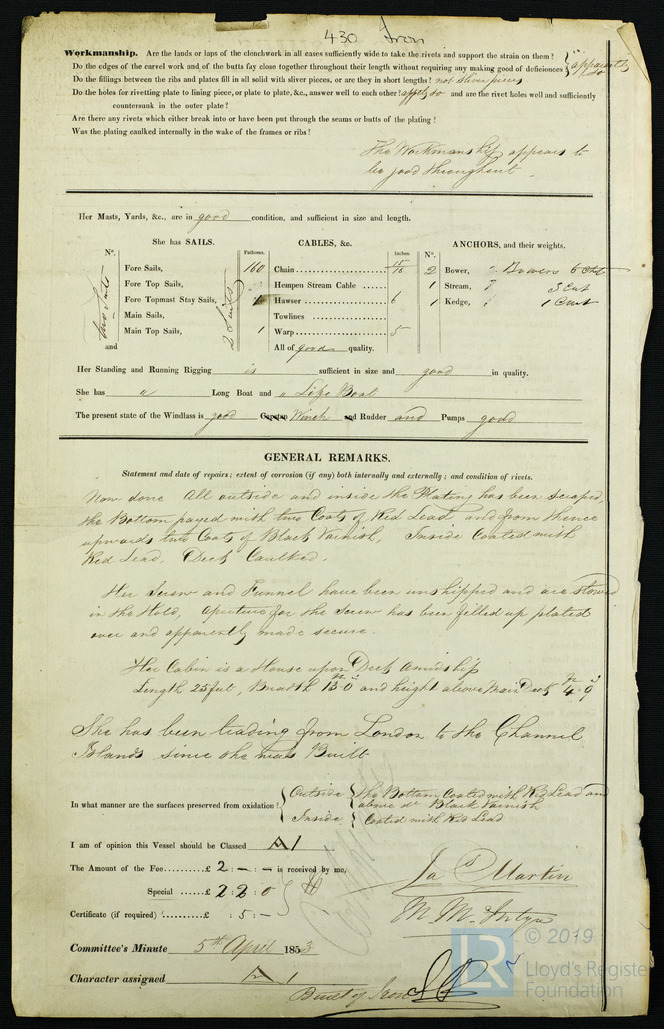 430 Iron
Workmanship. Are the lands or laps of the clenchwork in all cases sufficiently wide to take the rivets and support the strain on them?
Do the edges of the carvel work and of the butts fay close together throughout their length without requiring any making good of deficiences? apparently so
Do the fillings between the ribs and plates fill in all solid with sliver pieces, or are they in short lengths? not sliver pieces
Do the holes for rivetting plate to lining piece, or plate to plate, &c., answer well to each other? apply so and are the rivet holes well and sufficiently
countersunk in the outer plate?
Are there any rivets which either break into or have been put through the seams or butts of the plating?
Was the plating caulked internally in the wake of the frames or ribs?
The Workmanship appears to
be good throughout
Her Masts, Yards, &c., are in good condition, and sufficient in size and length.
She has SAILS. CABLES, &c. ANCHORS, and their weights.
N°. Fathoms. Inches N°.
Fore Sails, 160 Chain 15/16 2 Bower, 2 Bowers 6 Cwt
Fore Top Sails, Hempen Stream Cable 1 Stream, 3 Cwt
Fore Topmast Stay Sails, 1 Hawser 6 1 Kedge, 1 Cwt
Main Sails, Towlines
Main Top Sails, 1 Warp 5
two Suits
2 Suits
and All of good quality.
Her Standing and Running Rigging is sufficient in size and good in quality.
She has a Long Boat and a Life Boat
The present state of the Windlass is good Capstan Winch and Rudder and Pumps good
GENERAL REMARKS.
Statement and date of repairs; extent of corrosion (if any) both internally and externally; and condition of rivets.
Now done All outside and inside the Plating has been scraped,
the Bottom payed with two Coats of Red Lead and from thence
upwards two Coats of Black Varnish, Inside Coated with
Red Lead. Deck Caulked.
Her Screw and Funnel have been unshipped and are stowed
in the Hold, aperture for the Screw has been filled up plated
over and apparently made secure.
Her Cabin is a House upon Deck Amidship
Length 25 feet, Breadth 13.0 and height above Main Deck 4.9
She has been trading from London to the Channel
Islands since she was Built
In what manner are the surfaces preserved from oxidation? Outside The Bottom Coated with Red Lead and
above do Black Varnish
Inside Coated with Red Lead
I am of opinion this Vessel should be Classed A1
The Amount of the Fee £ 2 : - : - is received by me,
Special £ 2 : 2 : 0
Ja Martin
Certificate (if required) £ : 5 : -
M. McIntyre
Committee's Minute 5th April 1853
Character assigned A1
Built of Iron
LR
© 2019
Lloyd's Register
Foundation